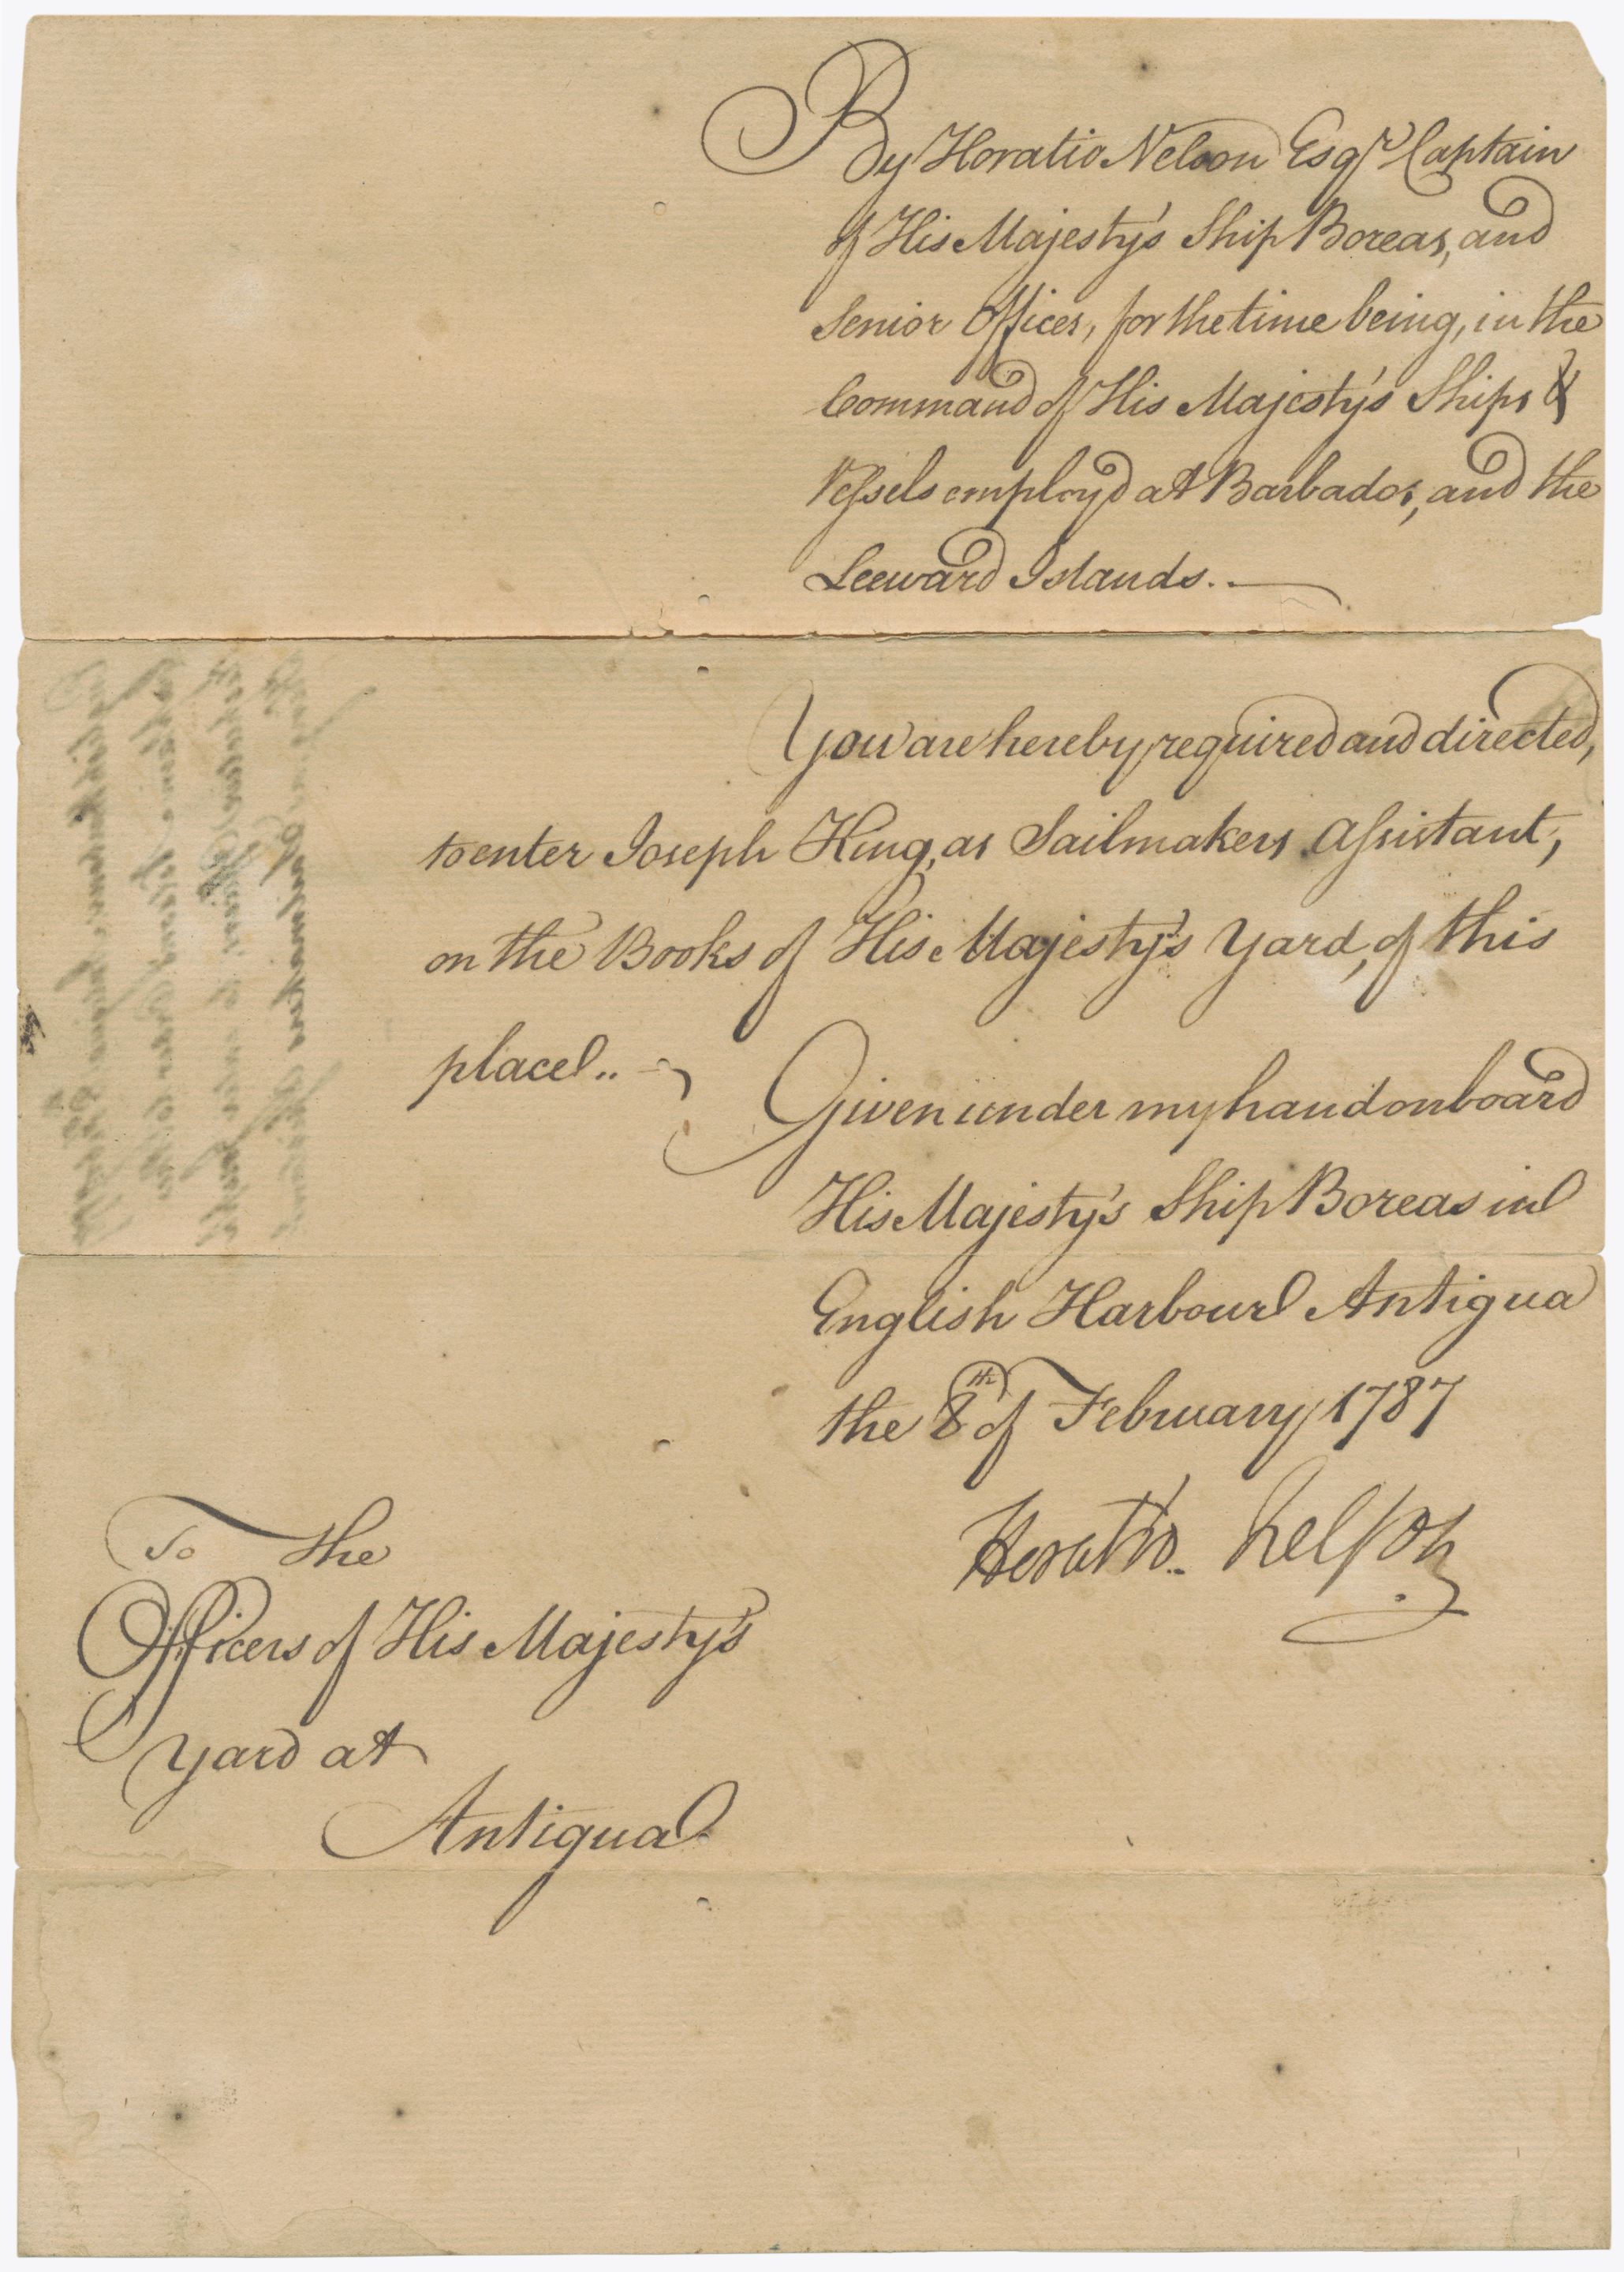 By Horatio Nelson Esqr. Captain
of His Majesty's Ship Boreas, and
Senior Officer, for the time being, in the
Command of His Majesty's Ships &
Vessels employ'd at Barbados, and the
Leeward Islands.
You are hereby required and directed,
to enter Joseph King, as Sailmakers Assistant,
on the Books of His Majesty's Yard, of this
place..
Given under my hand on board
His Majesty's Ship Boreas in
English Harbour Antigua
the 8th of February 1787
Horatio Nelson
To the
Officers of His Majesty's
Yard at
Antigua